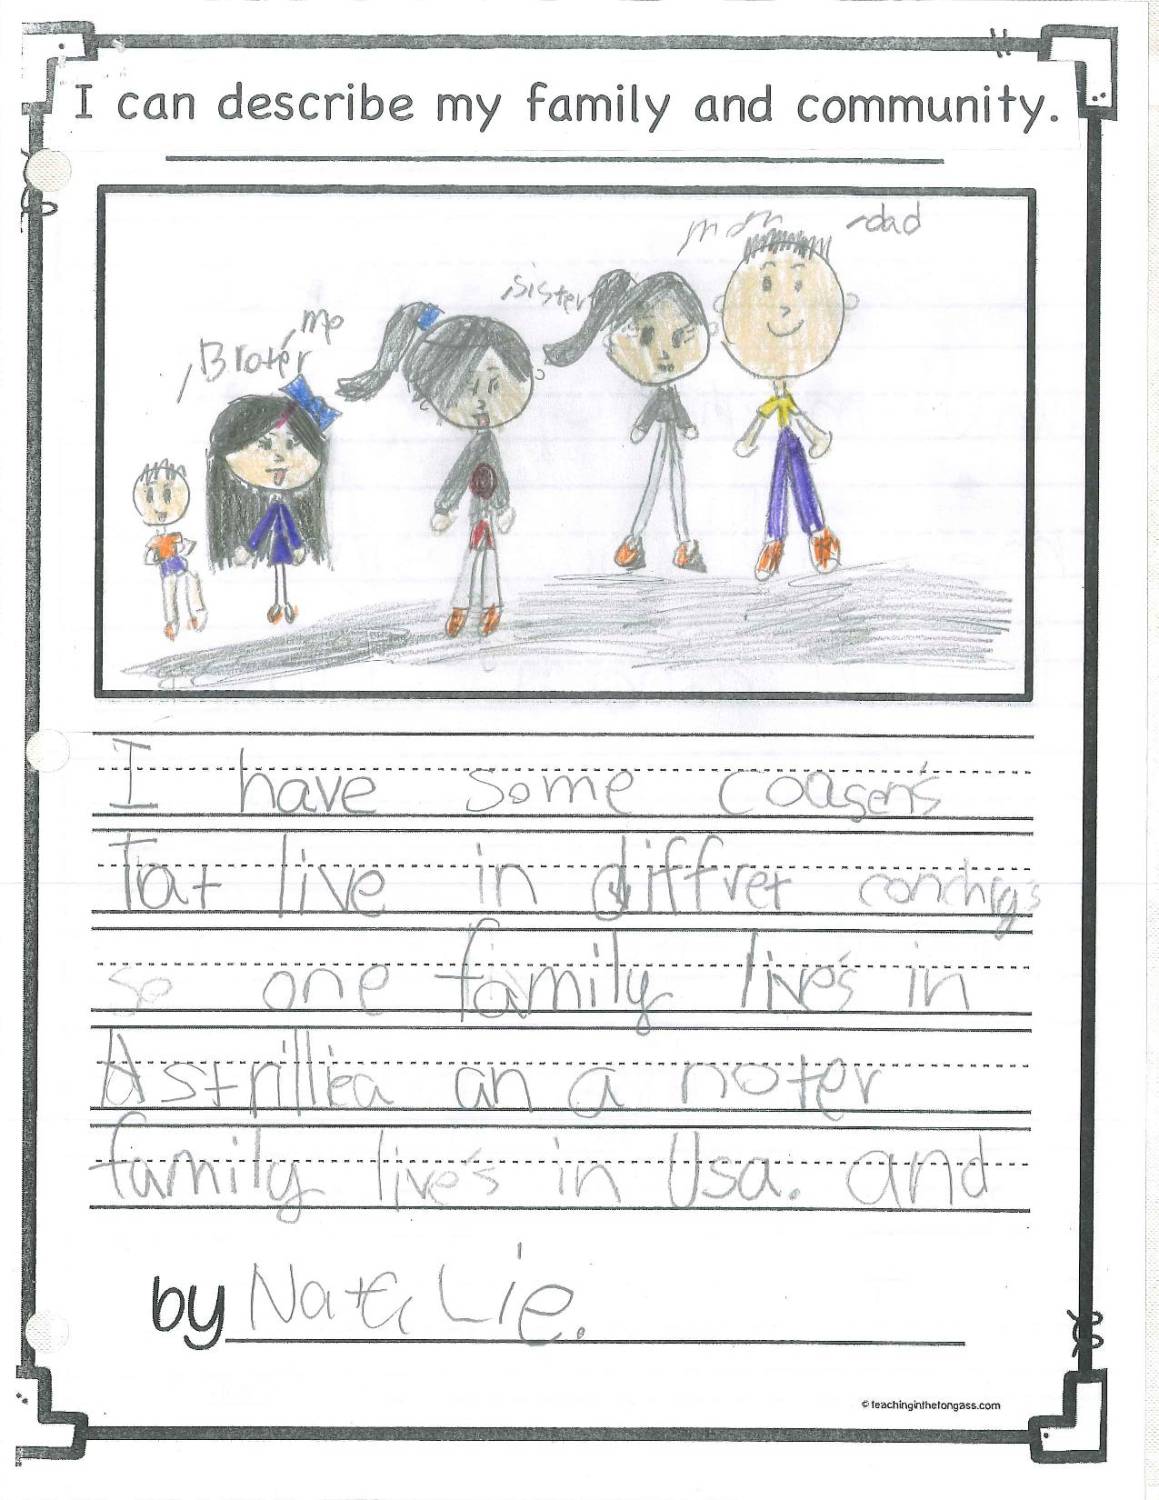 I can describe my family and community.
mom
dad
sister
me
Broter
I have some coasen's
Tat live in diffret
so one family live's in
Astrillea an a noter
family live's in Usa. and
by Natalie.
© teachinginthetongass.com